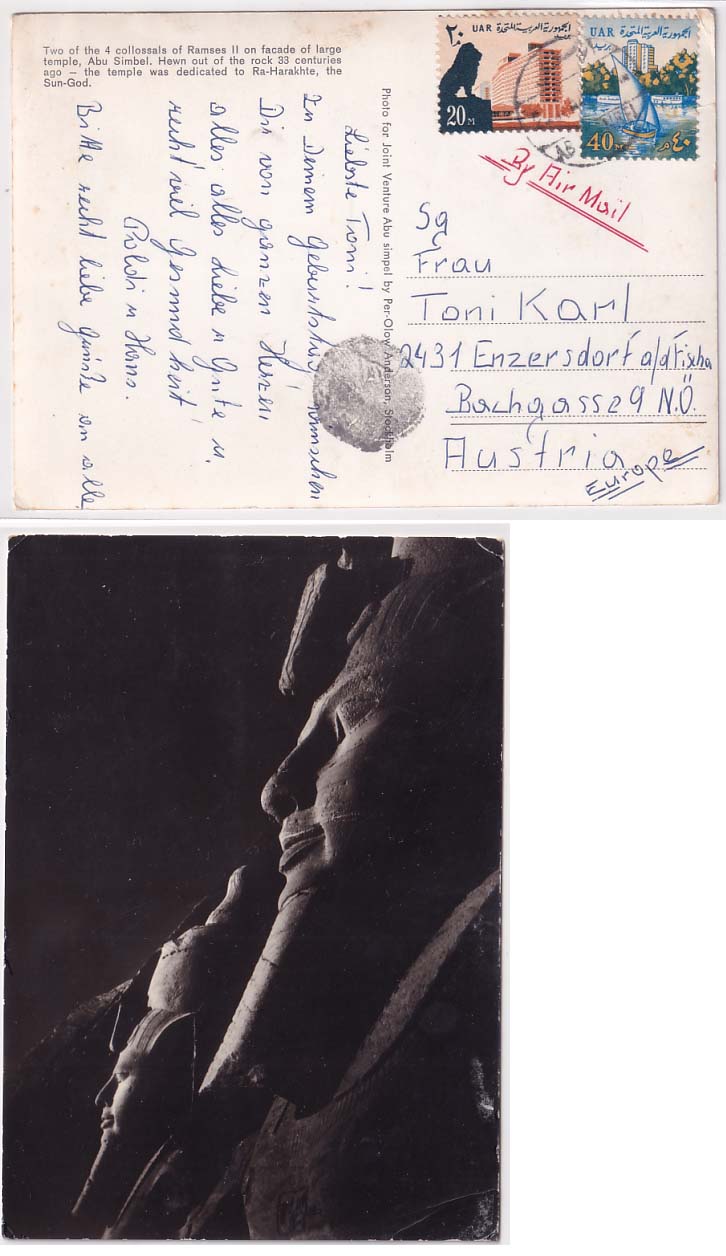 Two of the 4 collossals of Ramses II on facade of large
temple, Abu Simbel. Hewn out of the rock 33 centuries
ago – the temple was dedicated to Ra-Harakhte, the
Sun-God.
Photo for Joint Venture Abu simpel by Per-Olow Anderson, Stockholm
Liebste Toni!
Zu Deinem Geburtstag wünschen
Dir von ganzen Herzen
alles alles Liebe u Gute u.
recht viel Gesundheit!
Poldi u Hans.
Bitte recht liebe Grüße an alle
UAR الجمهورية العربية المتحدة
بريد
٢٠
20 M
UAR الجمهورية العربية المتحدة
بريد
40 M ٤٠ م
By Air Mail
Sg
Frau
Toni Karl
2431 Enzersdorf a/d Fischa
Bachgasse 9 N.Ö.
Austria
Europe